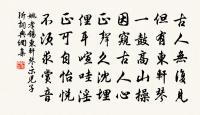 古人無復見
但有東軒琴
一鼓高山操
因窺古人心
正聲久沈埋
俚耳喧哇淫
正可自怡悅
不須求賞音
姚孝錫東軒琴示兒子
沂詞典網集